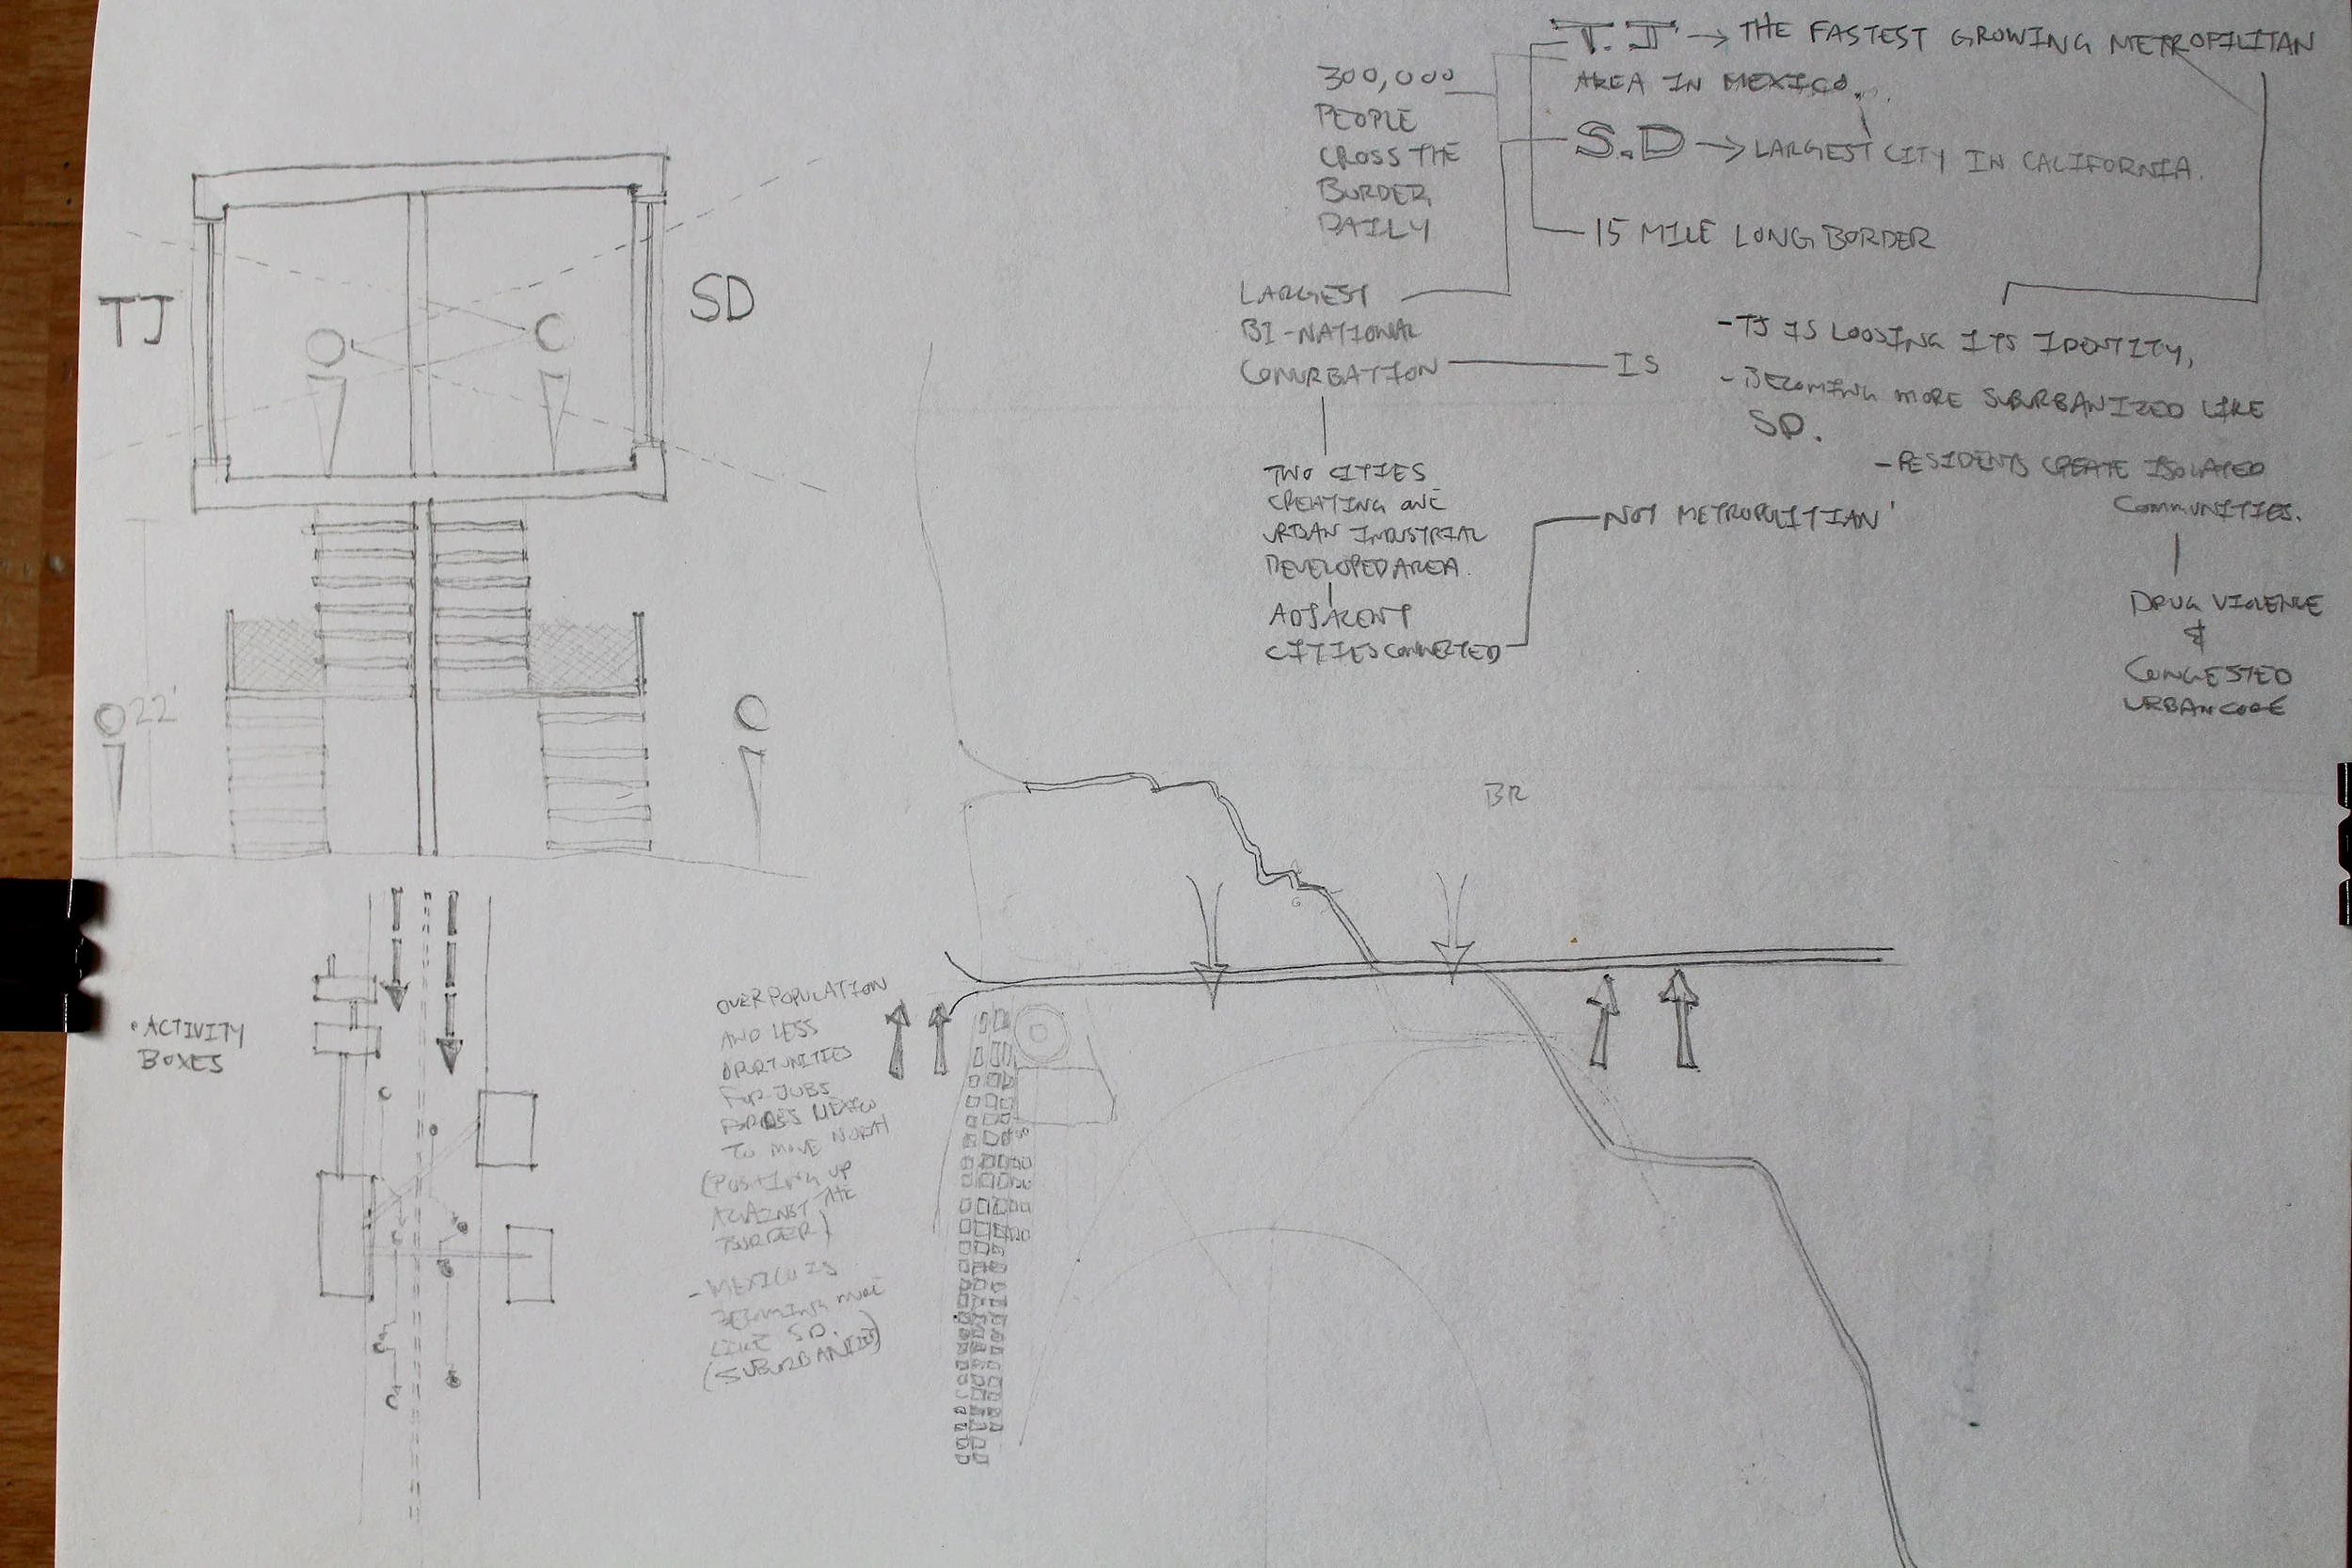 T.J → THE FASTEST GROWING METROPILITAN
AREA IN MEXICO.
S.D → LARGEST CITY IN CALIFORNIA.
15 MILE LONG BORDER
300,000
PEOPLE
CROSS THE
BORDER
DAILY
LARGEST
BI-NATIONAL
CONURBATION
IS
TWO CITIES
CREATING ONE
URBAN INDUSTRIAL
DEVELOPED AREA.
ADJACENT
CITIES CONNECTED
NOT METROPOLITIAN
-TJ IS LOOSING ITS IDENTITY,
-BECOMING MORE SUBURBANIZED LIKE
SD.
-RESIDENTS CREATE ISOLATED
COMMUNITIES.
DRUG VIOLENCE
&
CONGESTED
URBAN CORE
TJ
SD
22'
BR
• ACTIVITY
BOXES
OVERPOPULATION
AND LESS
OPORTUNITIES
FOR JOBS
MEXICO
TO MOVE NORTH
(POSTING UP
AGAINST THE
BORDER)
-MEXICO IS
BECOMING MORE
LIKE SD.